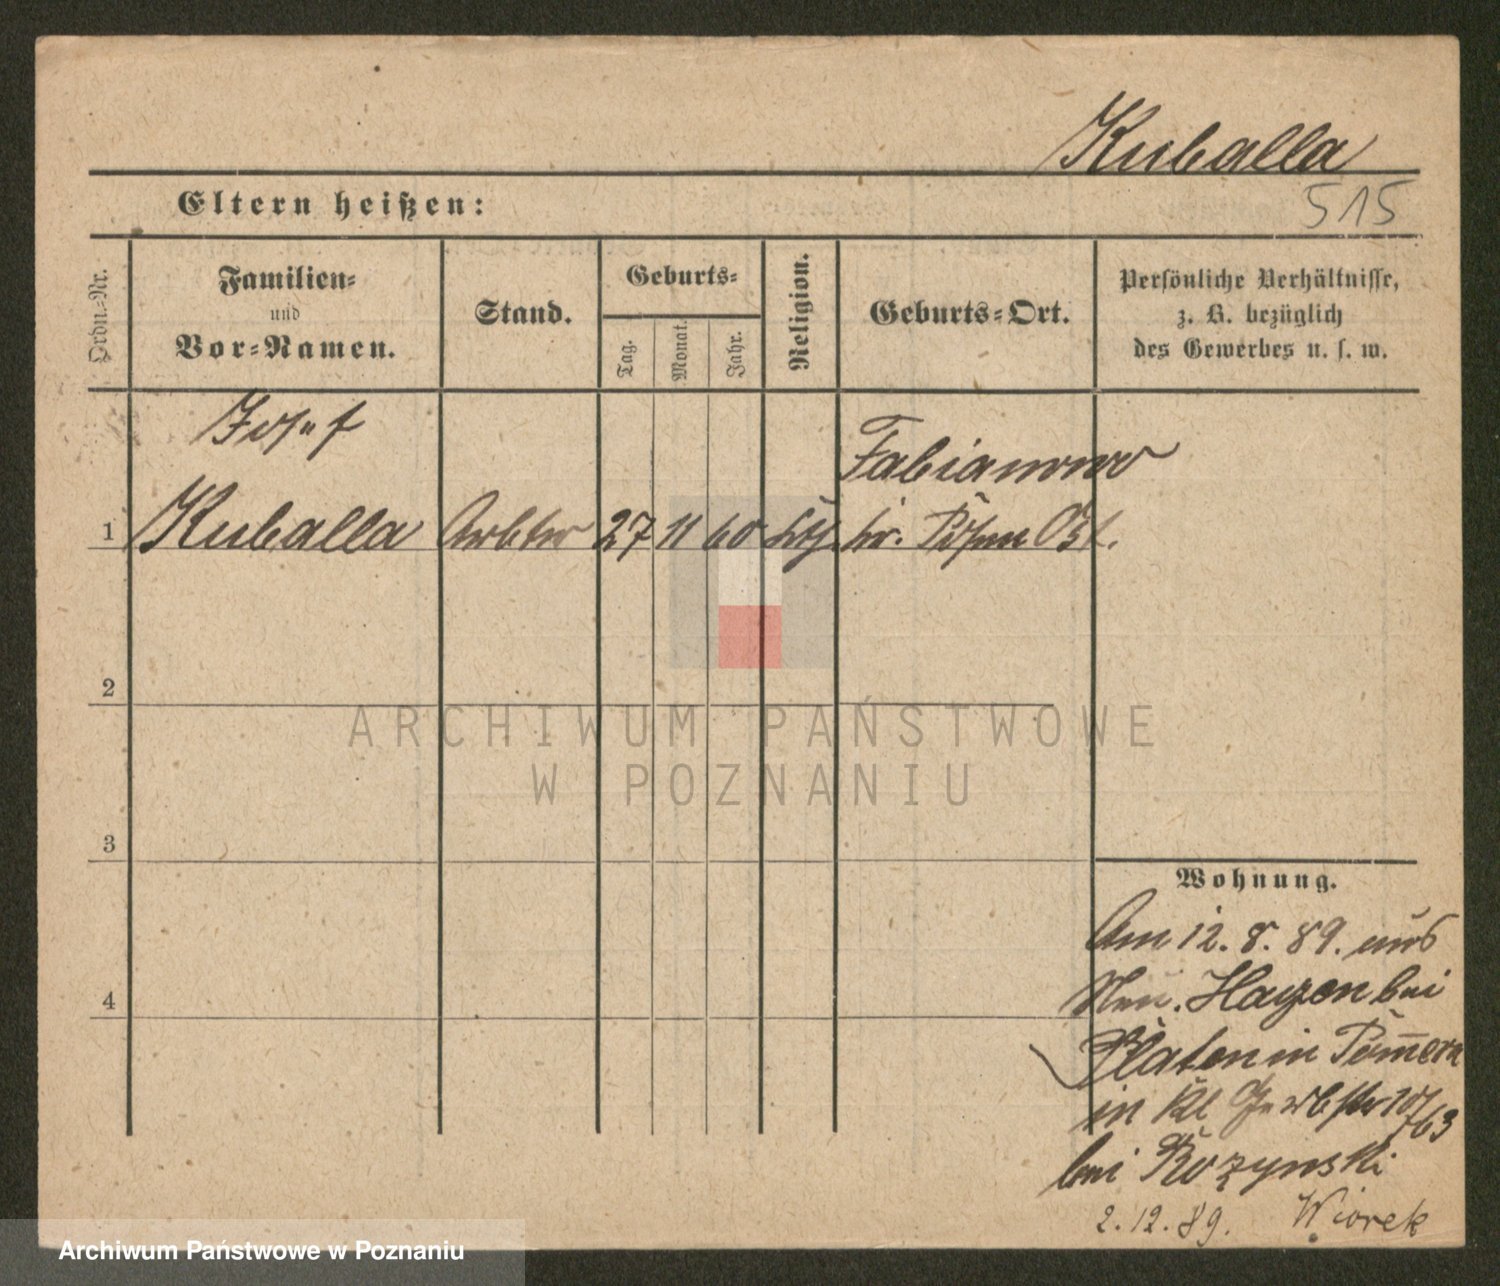 Kuballa
Eltern heißen:
515
Ordn.-Nr.
Familien-
und
Vor-Namen.
Stand.
Geburts-
Tag.
Monat.
Jahr.
Religion.
Geburts-Ort.
Persönliche Verhältnisse,
z. B. bezüglich
des Gewerbes u. s. w.
Josef
Fabianowo
1 Kuballa Arbtr 27 11 60 kth. kr. Posen Ost.
2
ARCHIWUM PAŃSTWOWE
W POZNANIU
3
Wohnung.
Am 12. 8. 89. aus
Neu. Hagen bei
4
Platen in Pom̅ern
in Kl Gerbstr 10/63
bei Rozynski
2. 12. 89. Wiorek
Archiwum Państwowe w Poznaniu